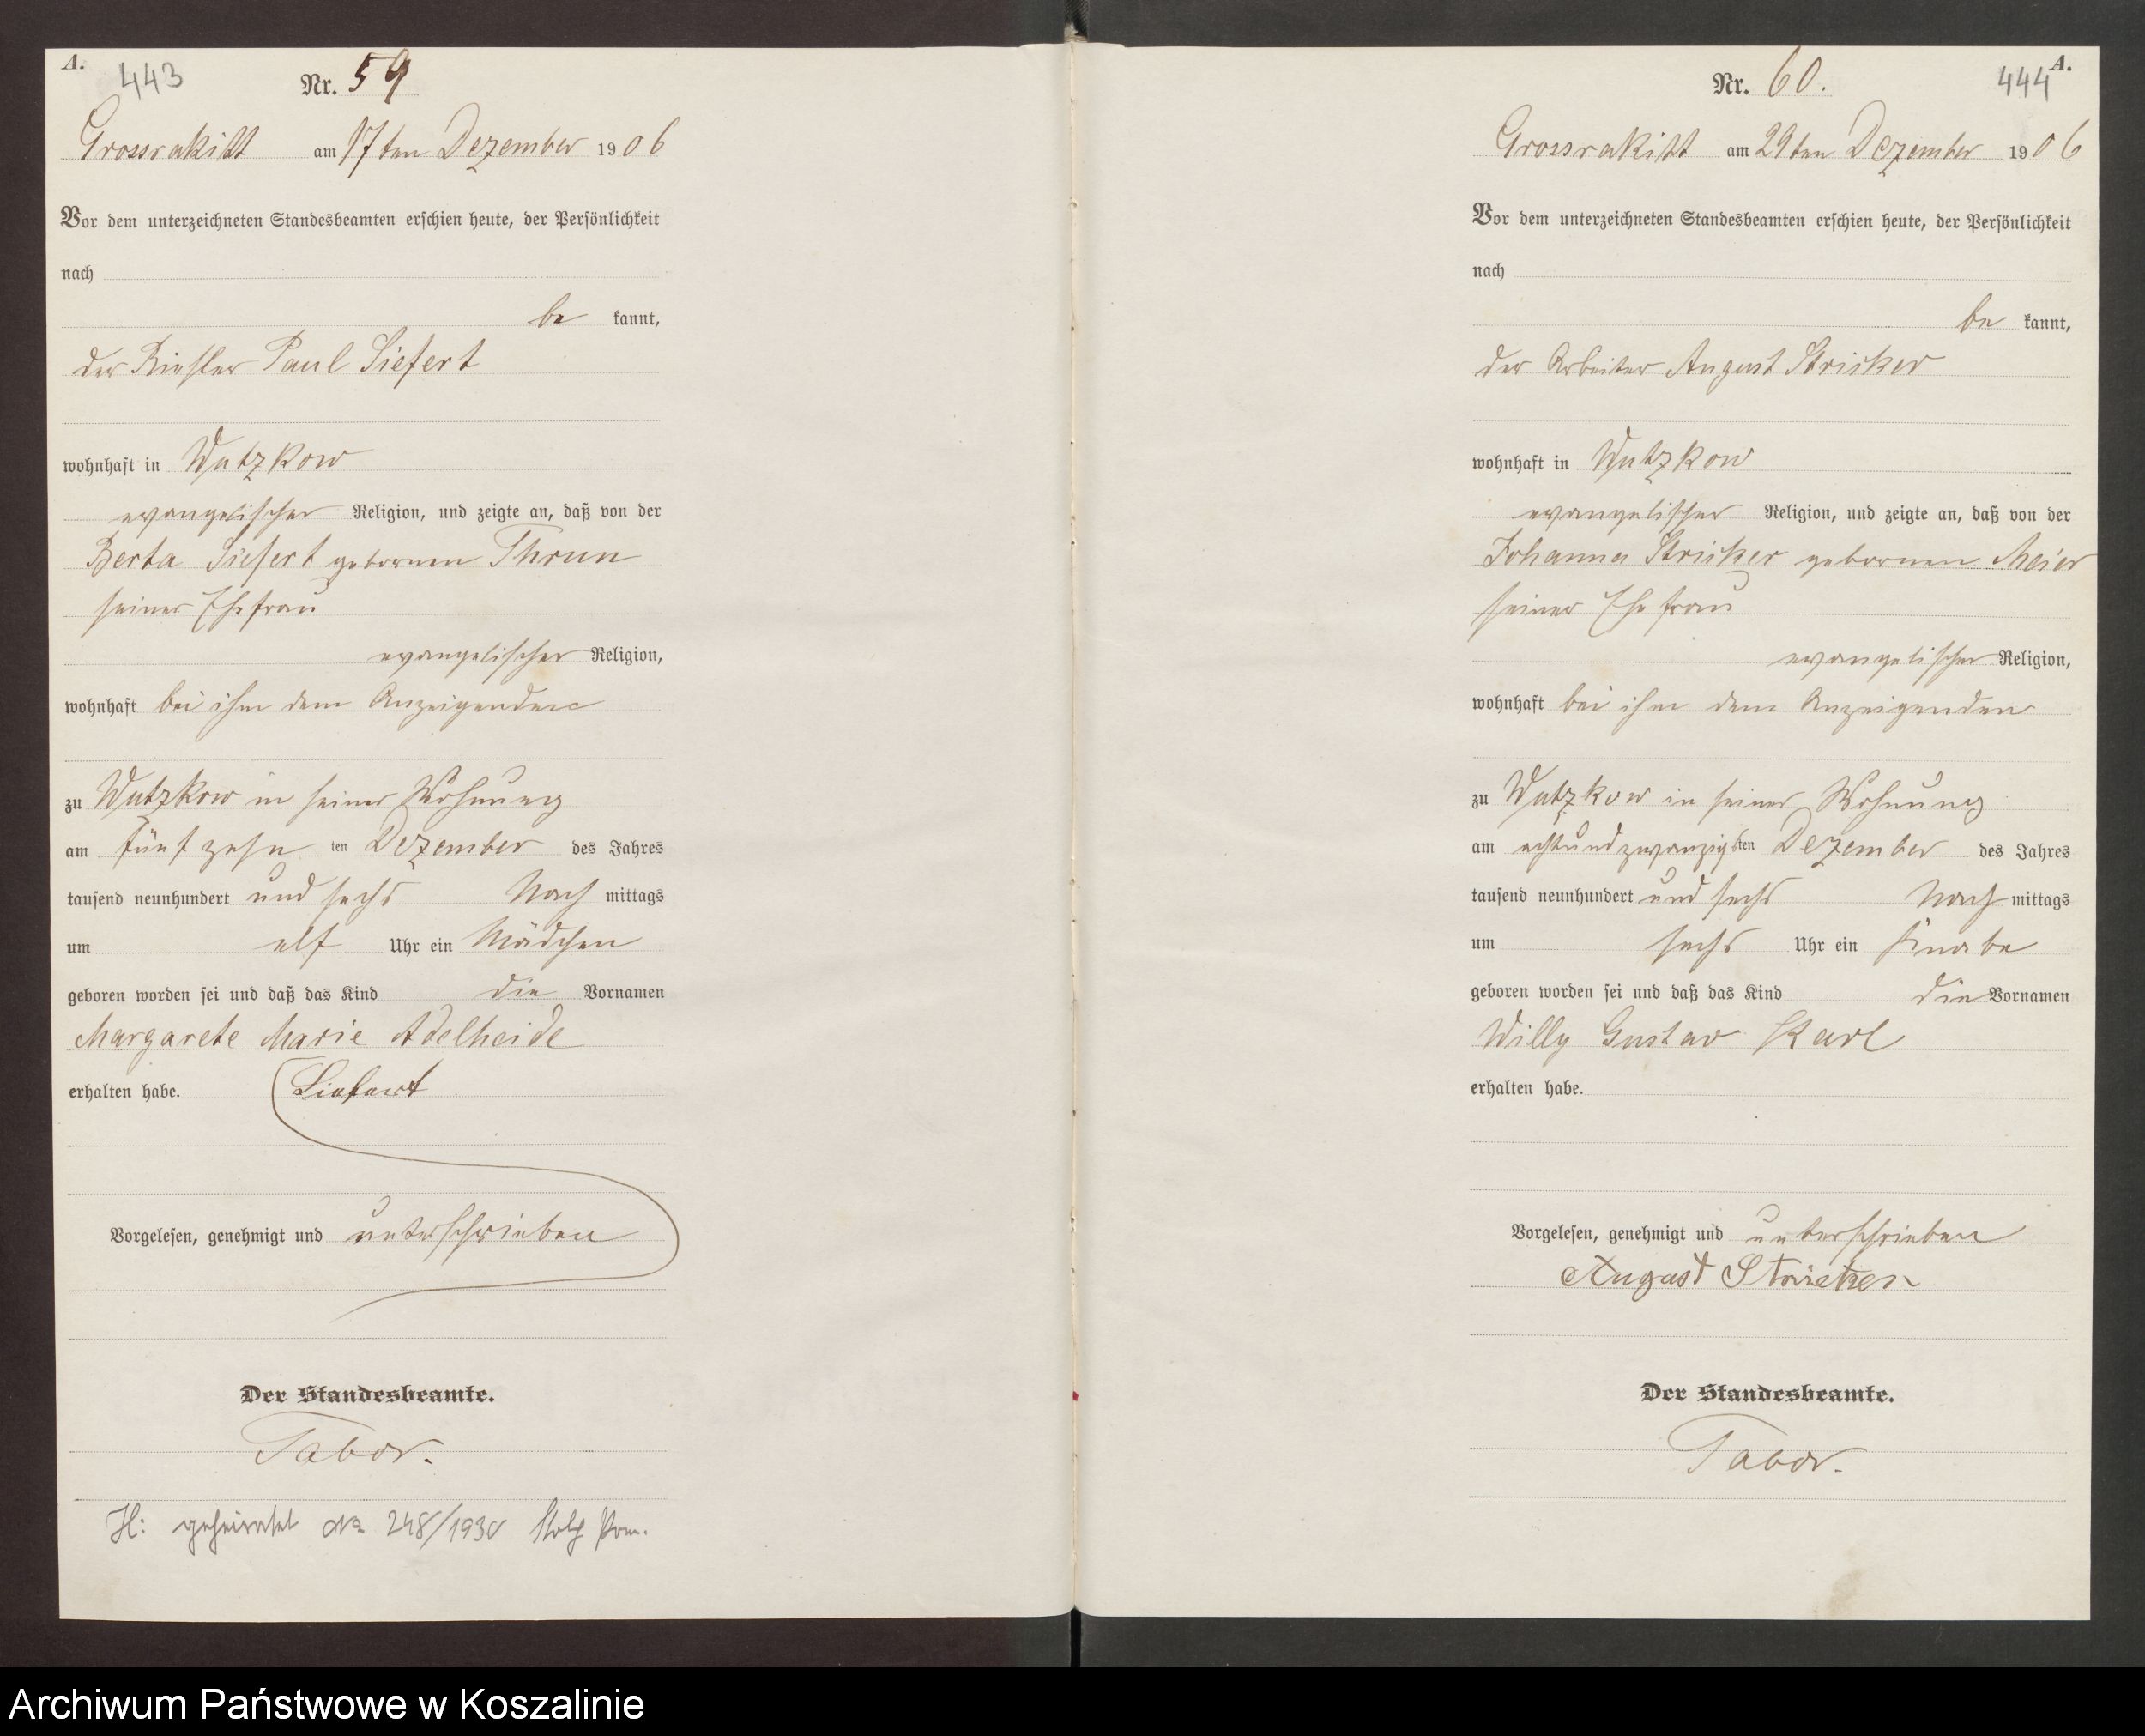 A.
443
Nr. 59
Grossrakitt am 17ten Dezember 1906
Vor dem unterzeichneten Standesbeamten erschien heute, der Persönlichkeit
nach
be kannt,
der Paul Siefert
wohnhaft in Wutzkow
evangelischer Religion, und zeigte an, daß von der
Berta Siefert gebornen Thrun
seiner Ehefrau
evangelischer Religion,
wohnhaft bei ihm dem Anzeigenden
zu Wutzkow in seiner Wohnung
am fünfzehn ten Dezember des Jahres
tausend neunhundert und sechs Nach mittags
um elf Uhr ein Mädchen
geboren worden sei und daß das Kind die Vornamen
Margarete Marie Adelheide
erhalten habe. (Siefert
Vorgelesen, genehmigt und unterschrieben
Der Standesbeamte.
Tabor.
H: geheiratet 248/1930 Stolp Pom.
A.
444
Nr. 60.
Grossrakitt am 29ten Dezember 1906
Vor dem unterzeichneten Standesbeamten erschien heute, der Persönlichkeit
nach
be kannt,
der Arbeiter August Stricker
wohnhaft in Wutzkow
evangelischer Religion, und zeigte an, daß von der
Johanna Stricker gebornen Meier
seiner Ehefrau
evangelischer Religion,
wohnhaft bei ihm dem Anzeigenden
zu Wutzkow in seiner Wohnung
am achtundzwanzigsten Dezember des Jahres
tausend neunhundert und sechs Nach mittags
um sechs Uhr ein Knabe
geboren worden sei und daß das Kind die Vornamen
Willy Gustav Karl
erhalten habe.
Vorgelesen, genehmigt und unterschrieben
August Stricker
Der Standesbeamte.
Tabor.
Archiwum Państwowe w Koszalinie